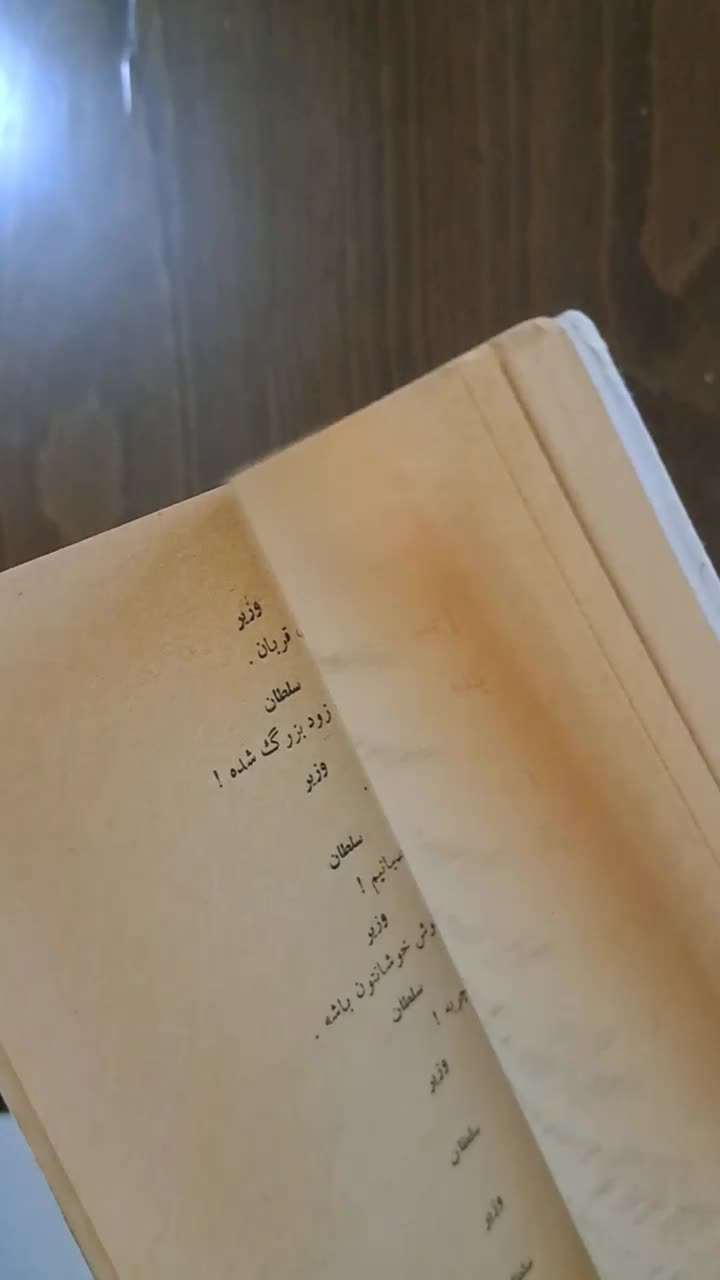 وزیر
قربان .
سلطان
زود بزرگ شده !
وزیر
.
سلطان
!
وزیر
خوشانتون باشه .
سلطان
!
وزیر
سلطان
وزیر
سلطان